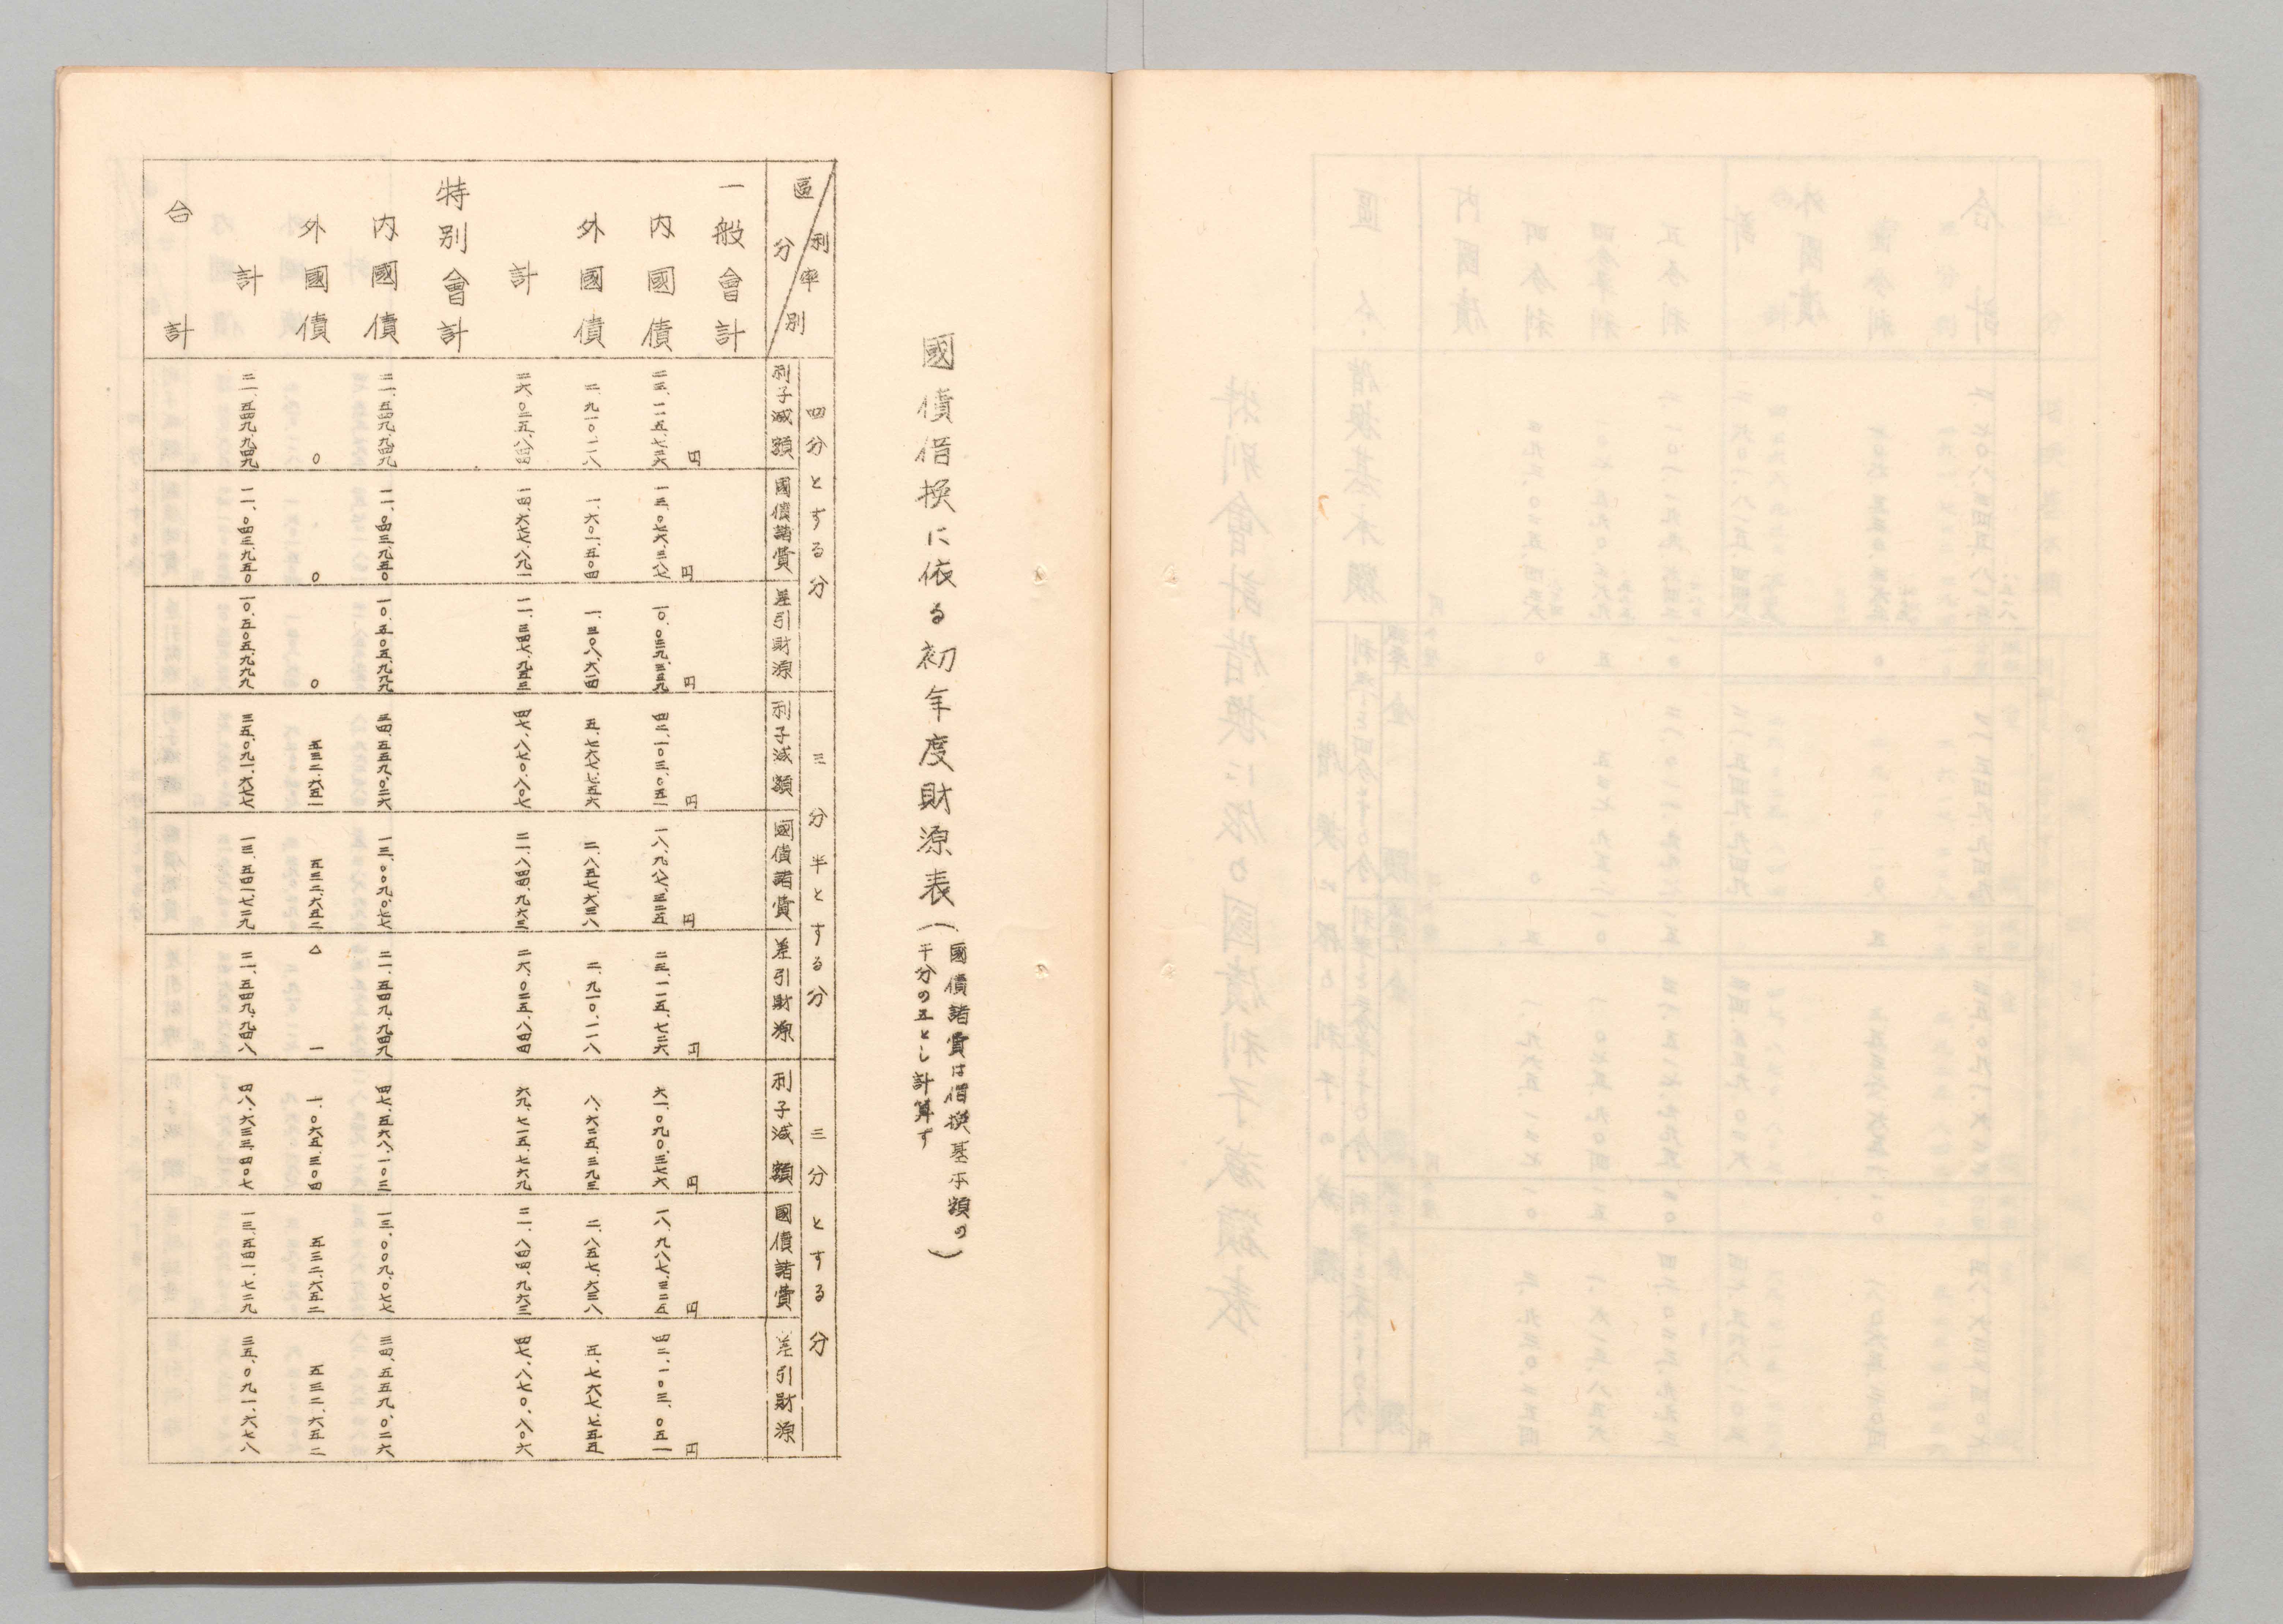 國債借換に依る初年度財源表(國債諸費は借換基本額の
千分の五とし計算す)
利率別 四分とする分 三分半とする分 三分とする分
區分 利子減額 國債諸費 差引財源 利子減額 國債諸費 差引財源 利子減額 國債諸費 差引財源
一般會計
円 円 円 円 円 円 円 円 円
内國債 二三.一一五.七二六 一三.〇七六.三八七 一〇.〇三九.三三九 四二.一〇三.〇五一 一八.九八七.三二五 二三.一一五.七二六 六一.〇九〇.三七六 一八.九八七.三二五 四二.一〇三.〇五一
外國債 二.九一〇.一一八 一.六〇一.五〇四 一.三〇八.六一四 五.七六七.七五六 二.八五七.六三八 二.九一〇.一一八 八.六二五.三九三 二.八五七.六三八 五.七六七.七五五
計 二六.〇二五.八四四 一四.六七七.八九一 一一.三四七.九五三 四七.八七〇.八〇七 二一.八四四.九六三 二六.〇二五.八四四 六九.七一五.七六九 二一.八四四.九六三 四七.八七〇.八〇六
特別會計
内國債 二一.五四九.九四九 一一.〇四三.九五〇 一〇.五〇五.九九九 三四.五五九.〇二六 一三.〇〇九.〇七七 二一.五四九.九四九 四七.五六八.一〇三 一三.〇〇九.〇七七 三四.五五九.〇二六
外國債 〇 〇 〇 五三二.六五一 五三二.六五二 △ 一 一.〇六五.三〇四 五三二.六五二 五三二.六五二
計 二一.五四九.九四九 一一.〇四三.九五〇 一〇.五〇五.九九九 三五.〇九一.六七七 一三.五四一.七二九 二一.五四九.九四八 四八.六三三.四〇七 一三.五四一.七二九 三五.〇九一.六七八
台計